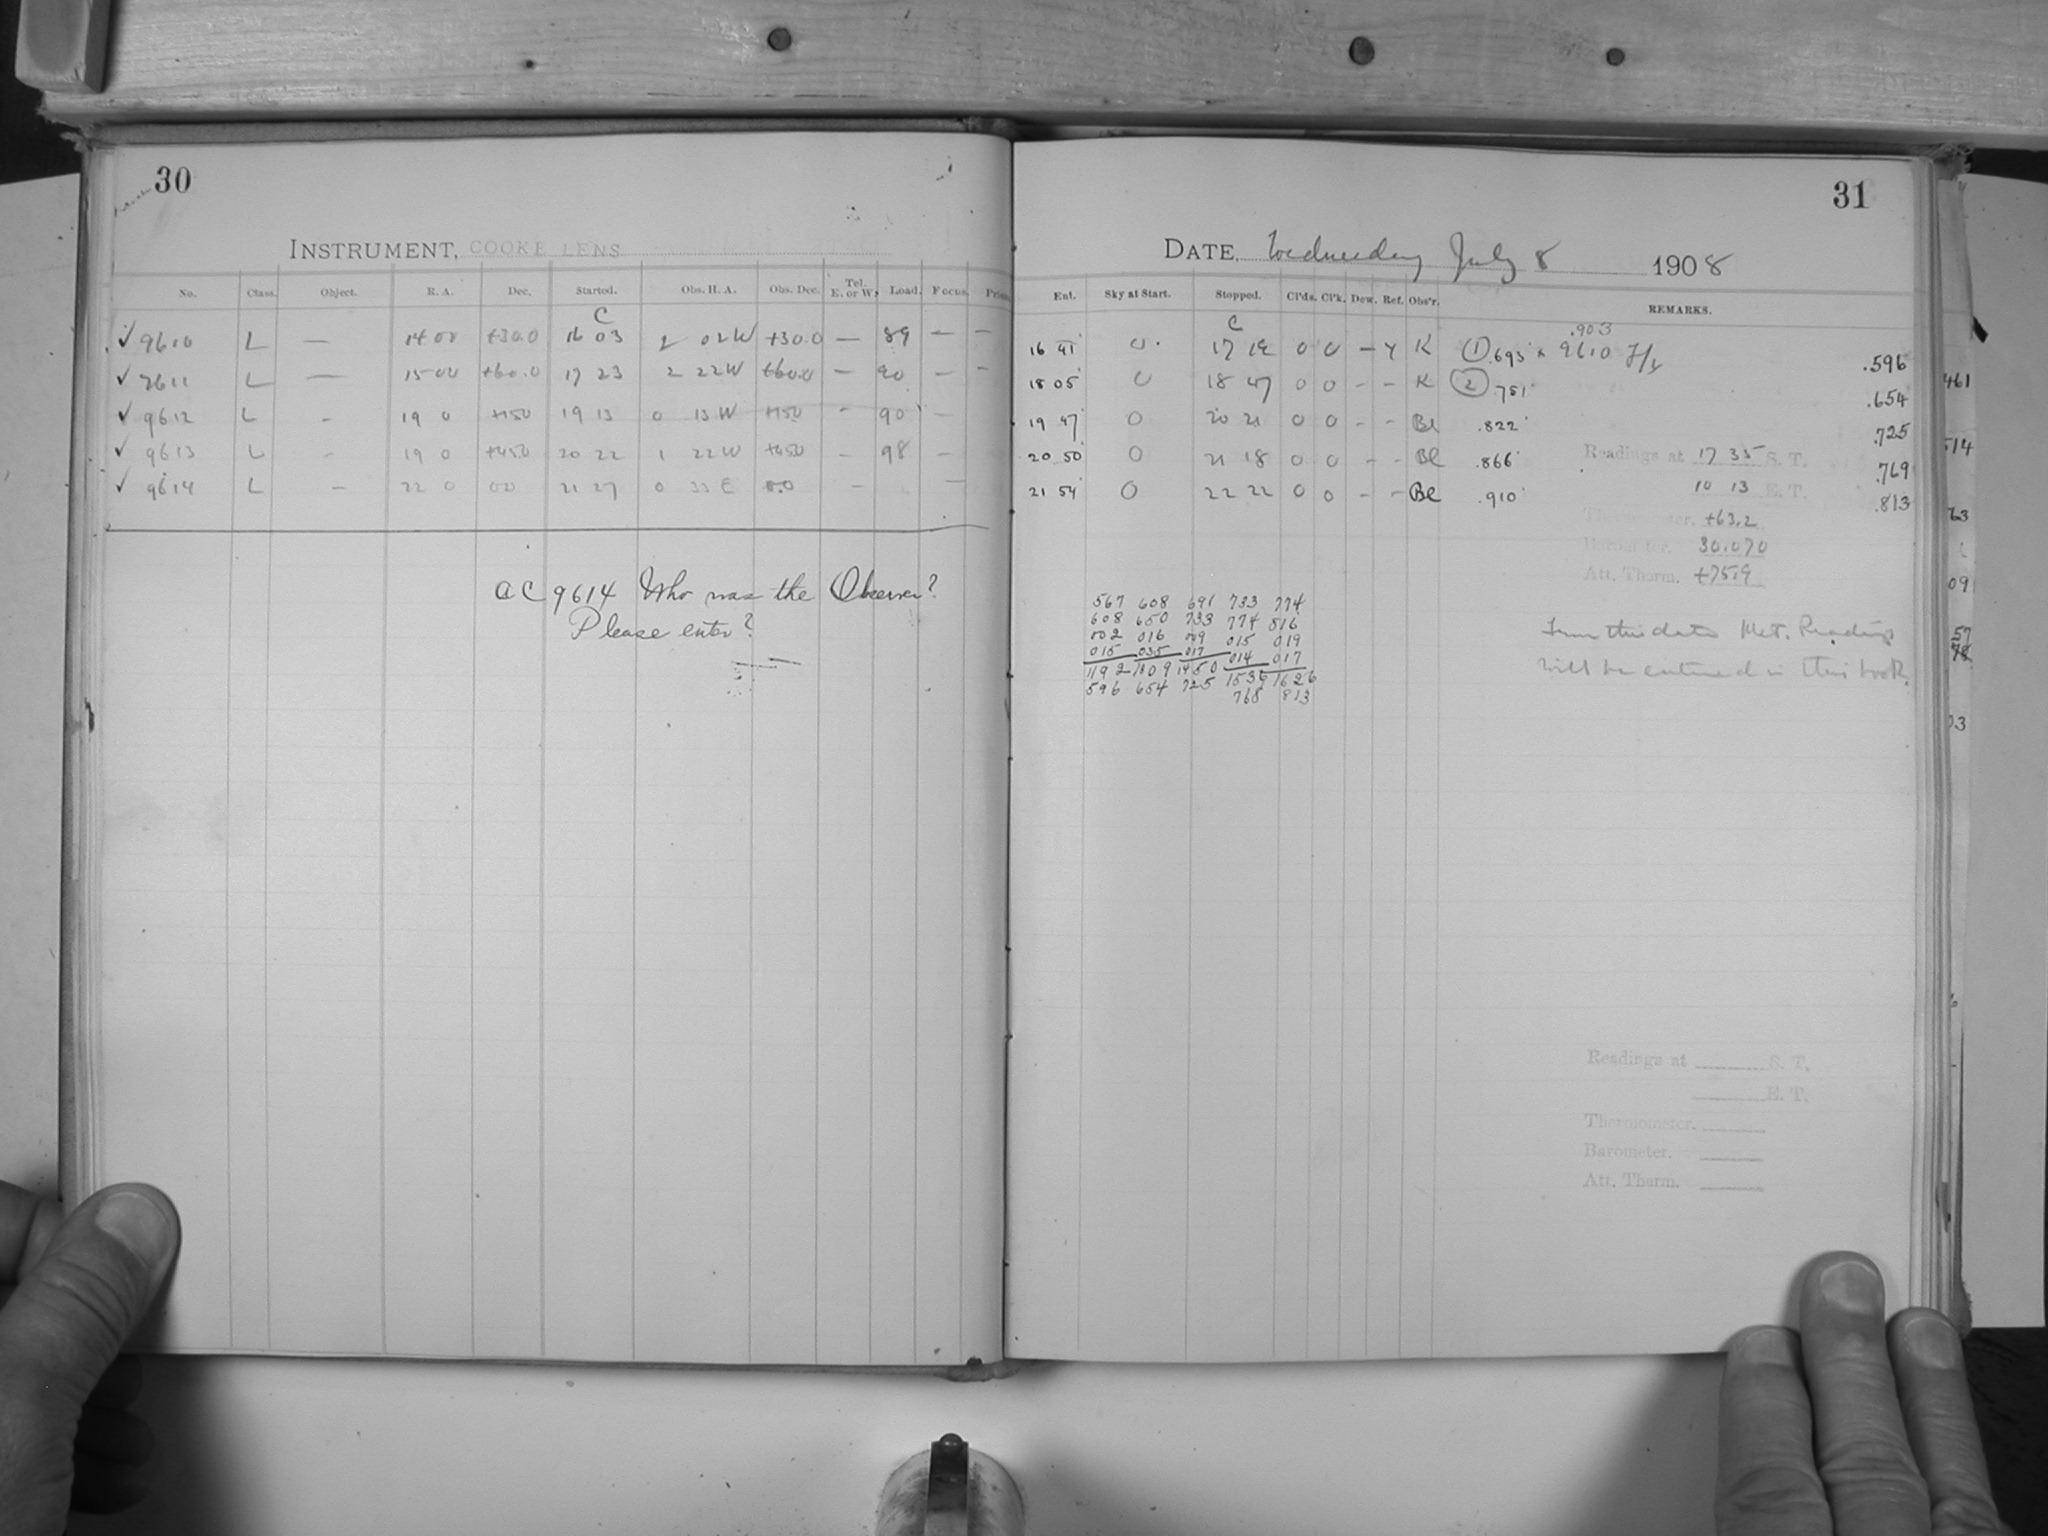 30
INSTRUMENT, COOKE LENS
No. Class. Object. R. A. Dec. Started. Obs. H. A. Obs. Dec. Tel. E. or W. Load. Focus. Prism
C
✓ 9610 L — 14 00 +30.0 16 03 2 02 W +30.0 — 89 — —
✓ 9611 L — 15 00 +60.0 17 23 2 22 W +60.0 — 90 — —
✓ 9612 L - 19 0 +15.0 19 13 0 13 W +15.0 - 90 -
✓ 9613 L - 19 0 +45.0 20 22 1 22 W +45.0 - 98 -
✓ 9614 L - 22 0 0.0 21 27 0 33 E 0.0 - —
AC 9614 Who was the Observer?
Please enter?
31
DATE, Wednesday July 8 1908
Ent. Sky at Start. Stopped. Cl'ds. Cl'k. Dew. Ref. Obs'r. REMARKS.
C .903
16 41 0 17 19 0 0 - Y K ① .693 x 9610 .596
18 05 0 18 47 0 0 - - K ② .751 .654
19 47 0 20 21 0 0 - - Bl .822 .725
20 50 0 21 18 0 0 - - Bl .866 .769
21 54 0 22 22 0 0 - - Bl .910 .813
Readings at 17 35 S. T.
10 13 E. T.
Thermometer. +63.2
Barometer. 30.070
Att. Therm. +75.9
567 608 691 733 774
608 650 733 774 816
002 016 009 015 019
015 035 017 014 017
1192 1309 1450 1536 1626
596 654 725 768 813
From this date Met. Readings
will be entered in this book.
Readings at S. T.
E. T.
Thermometer.
Barometer.
Att. Therm.
461
514
63
09
57
78
03